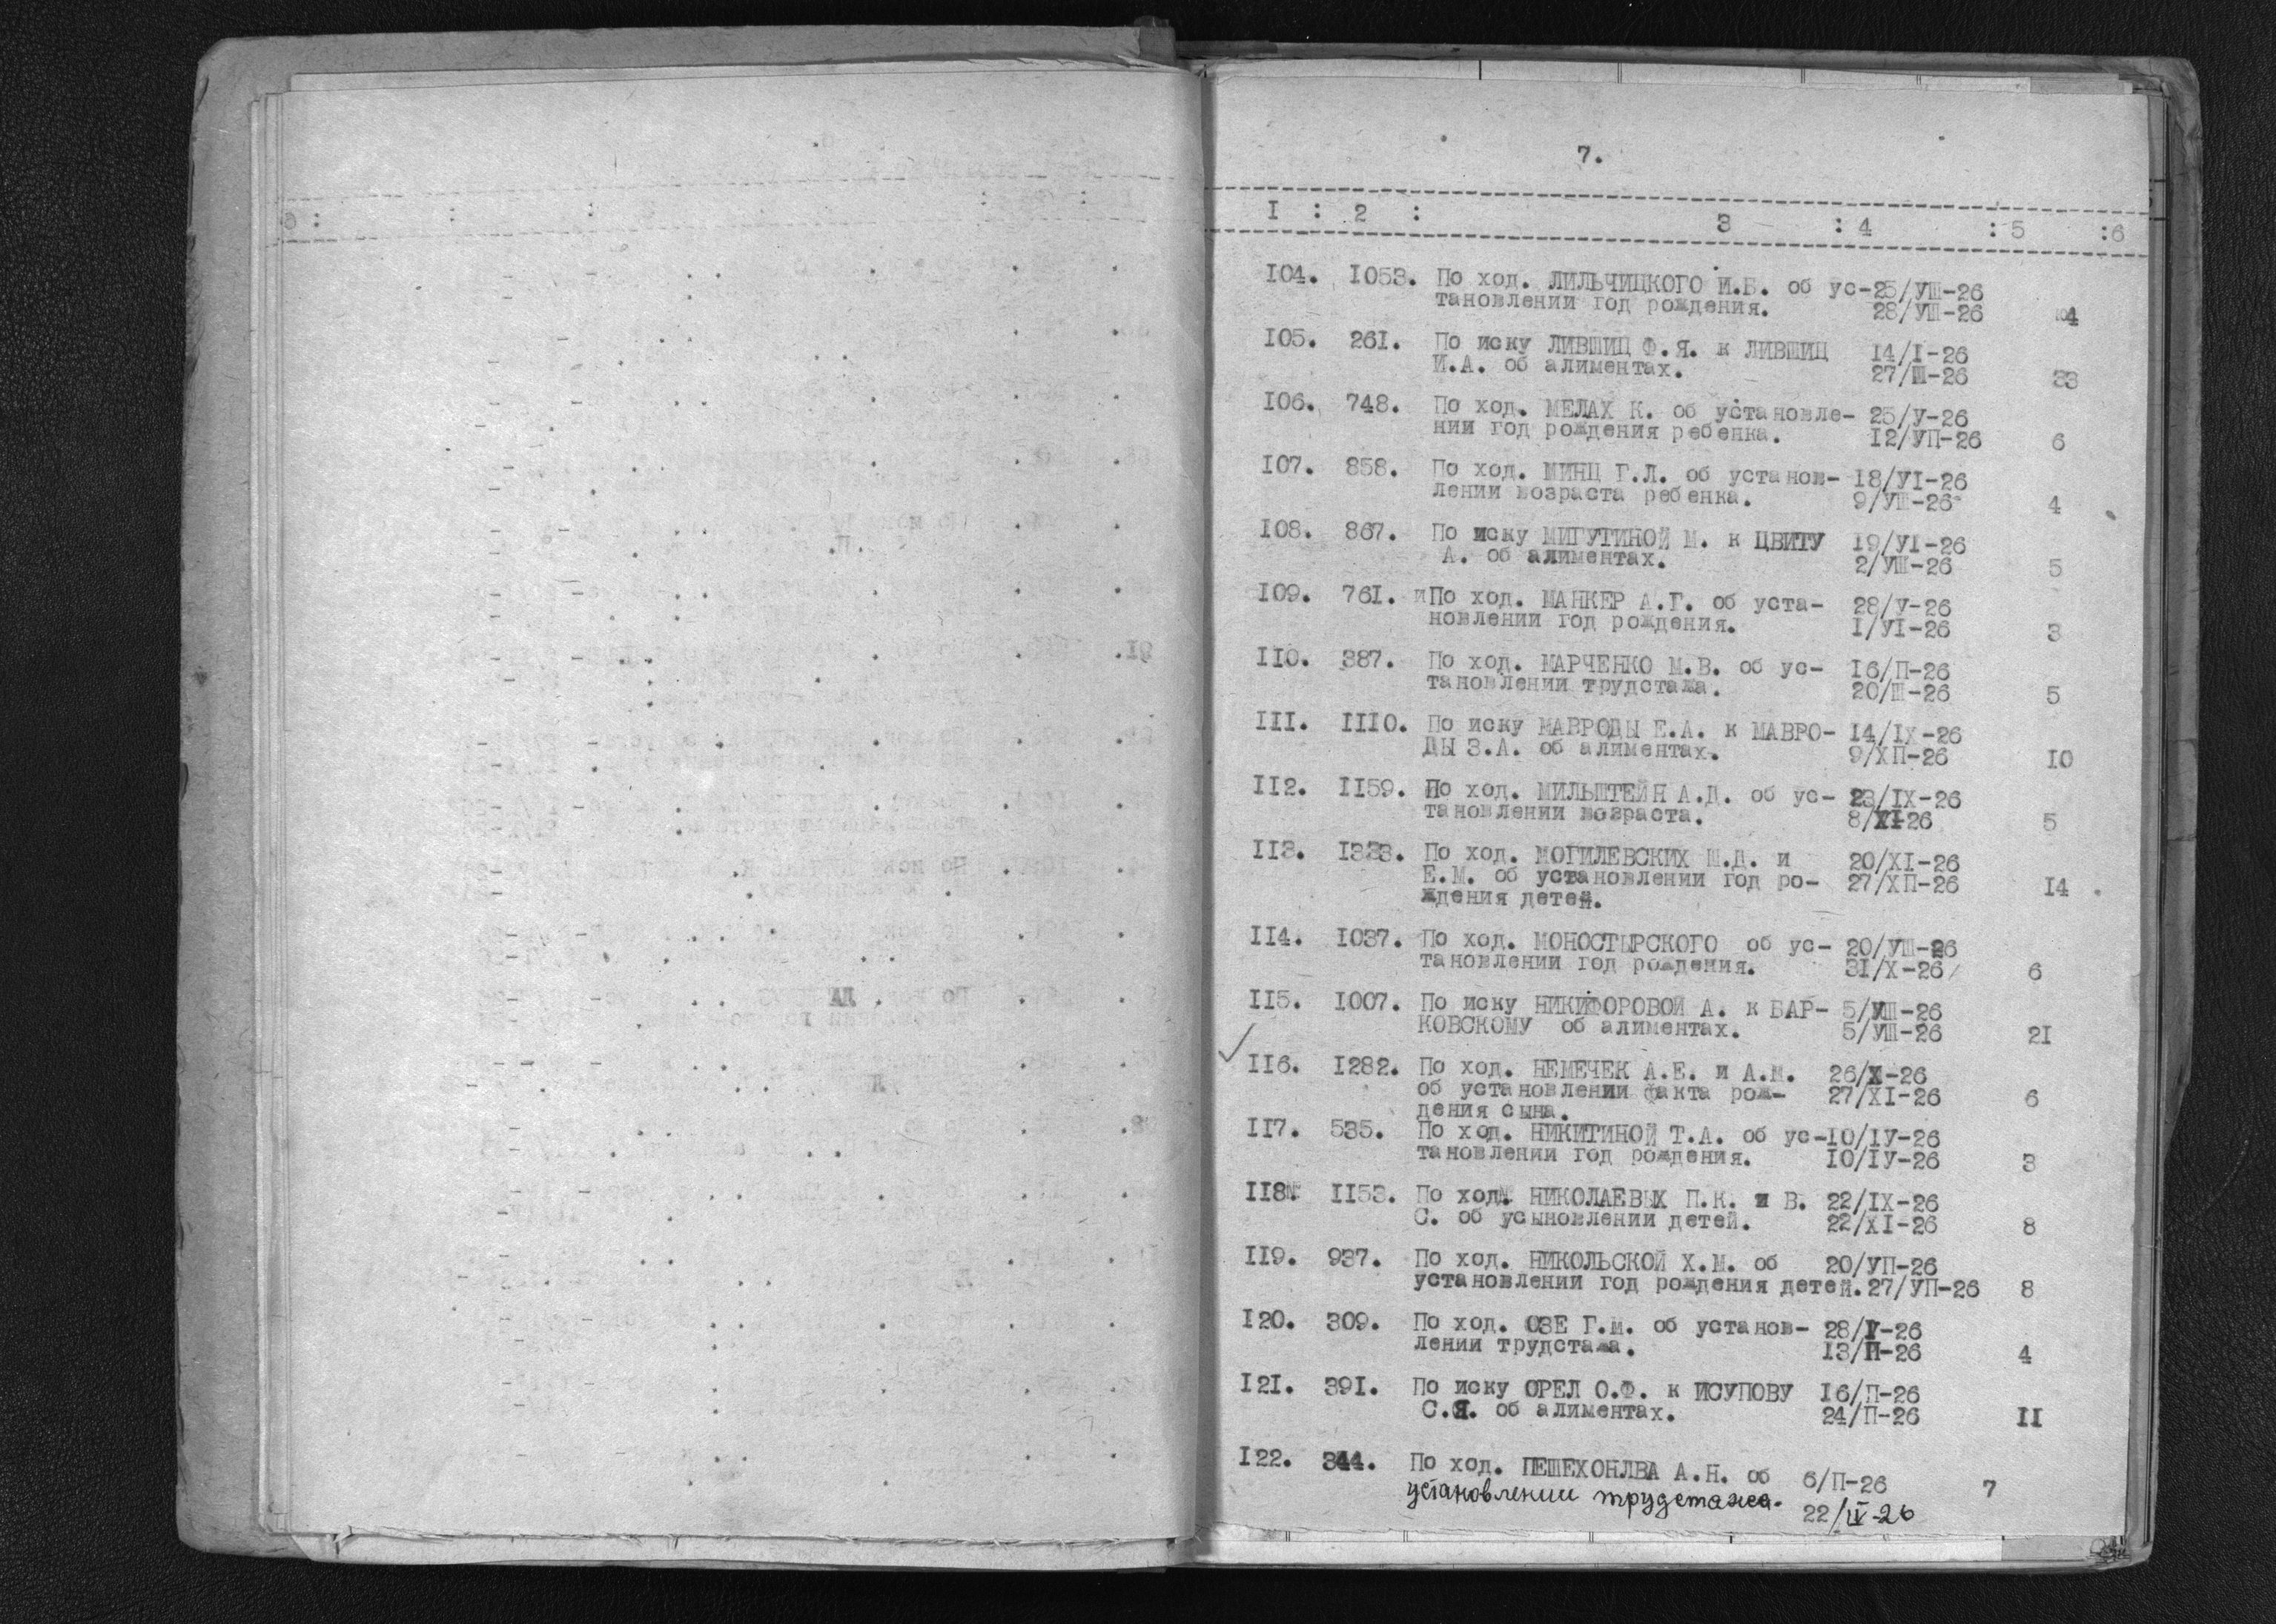 7.
I : 2 : 3 : 4 : 5 : 6
I04. I053. По ход. ЛИЛЬЧИЦКОГО И.Б. об ус-25/УШ-26
тановлении год рождения. 28/УШ-26 4
I05. 26I. По иску ЛИВШИЦ Ф.Я. к ЛИВШИЦ I4/I-26
И.А. об алиментах. 27/Ш-26 33
I06. 748. По ход. МЕЛАХ К. об установле- 25/У-26
нии год рождения ребенка. I2/УП-26 6
I07. 858. По ход. МИНЦ Г.Л. об установ- I8/УI-26
лении возраста ребенка. 9/УШ-26 4
I08. 867. По иску МИГУТИНОЙ М. к ЦВИТУ I9/УI-26
А. об алиментах. 2/УШ-26 5
I09. 76I. иПо ход. МАНКЕР А.Г. об уста- 28/У-26
новлении год рождения. I/УI-26 3
II0. 387. По ход. МАРЧЕНКО М.В. об ус- I6/П-26
тановлении трудстажа. 20/Ш-26 5
III. III0. По иску МАВРОДЫ Е.А. к МАВРО- I4/IX-26
ДЫ З.А. об алиментах. 9/ХП-26 I0
II2. II59. По ход. МИЛЬШТЕЙН А.Д. об ус- 23/IX-26
тановлении возраста. 8/XI-26 5
II3. I333. По ход. МОГИЛЕВСКИХ Ш.Д. и 20/XI-26
Е.М. об установлении год ро- 27/ХП-26 I4
ждения детей.
II4. I037. По ход. МОНОСТЫРСКОГО об ус- 20/УШ-26
тановлении год рождения. 3I/X-26 6
II5. I007. По иску НИКИФОРОВОЙ А. к БАР- 5/УШ-26
КОВСКОМУ об алиментах. 5/УШ-26 2I
II6. I282. По ход. НЕМЕЧЕК А.Е. и А.М. 26/X-26
об установлении факта рож- 27/XI-26 6
дения сына.
II7. 535. По ход. НИКИТИНОЙ Т.А. об ус-I0/IУ-26
тановлении год рождения. I0/IУ-26 3
II8. II53. По ход. НИКОЛАЕВЫХ П.К. и В. 22/IX-26
С. об усыновлении детей. 22/XI-26 8
II9. 937. По ход. НИКОЛЬСКОЙ Х.М. об 20/УП-26
установлении год рождения детей. 27/УП-26 8
I20. 309. По ход. ОЗЕ Г.М. об установ- 28/I-26
лении трудстажа. I3/П-26 4
I2I. 39I. По иску ОРЕЛ О.Ф. к ИСУПОВУ I6/П-26
С.Я. об алиментах. 24/П-26 II
I22. 344. По ход. ПЕШЕХОНЛВА А.Н. об 6/П-26 7
установлении трудстажа. 22/II-26